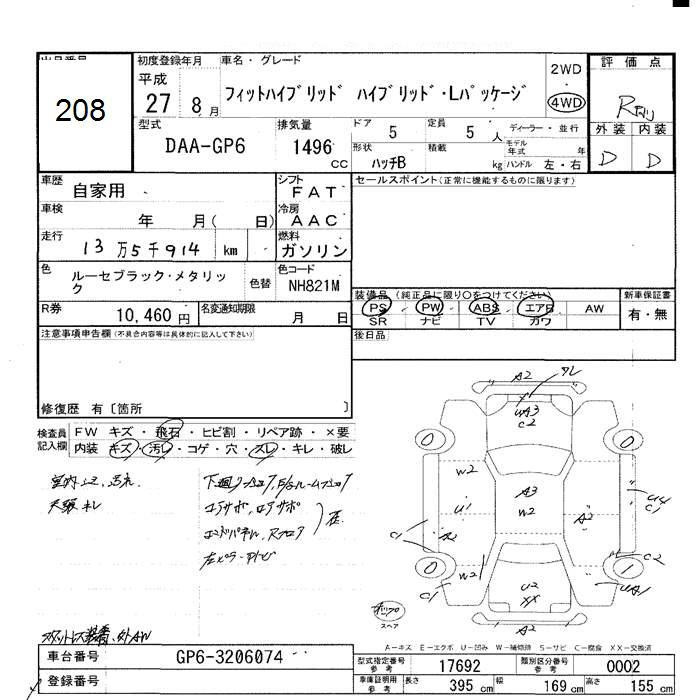 208
初度登録年月 車名・グレード 評価点
平成 27 8月 フィットハイブリッド ハイブリッド・Lパッケージ 2WD 4WD R
外装 内装
D D
型式 排気量 ドア 5 定員 5人 ディーラー・並行
DAA-GP6 1496cc 形状 ハッチB 積載 kg モデル年式 年 ハンドル 左・右
車歴 自家用 シフト FAT セールスポイント(正常に機能するものに限ります)
車検 年 月( 日) 冷房 AAC
走行 13万5千914 km 燃料 ガソリン
色 ルーセブラック・メタリック 色替 色コード NH821M
装備品 (純正品に限り〇をつけてください) 新車保証書
PS・PW・ABS・エアB AW 有・無
SR ナビ TV カワ
R券 10,460円 名変通知期限 月 日
注意事項申告欄(不具合内容等は具体的に記入して下さい) 後日品
修復歴 有〔箇所 〕
検査員記入欄 FW キズ・飛石・ヒビ割・リペア跡・×要
内装 キズ・汚レ・コゲ・穴・スレ・キレ・破レ
A2
A3
C2
W2 A3
W2
U1
C1 A2 A2 C1
C2
W2 C1 U2
XX
A2
0 0 0 1
スペア
A-キズ E-エクボ U-凹み W-補修跡 S-サビ C-腐食 XX-交換済
車台番号 GP6-3206074
登録番号
型式指定番号 参考 17692 類別区分番号 参考 0002
車庫証明用 参考 長さ 395cm 幅 169cm 高さ 155cm